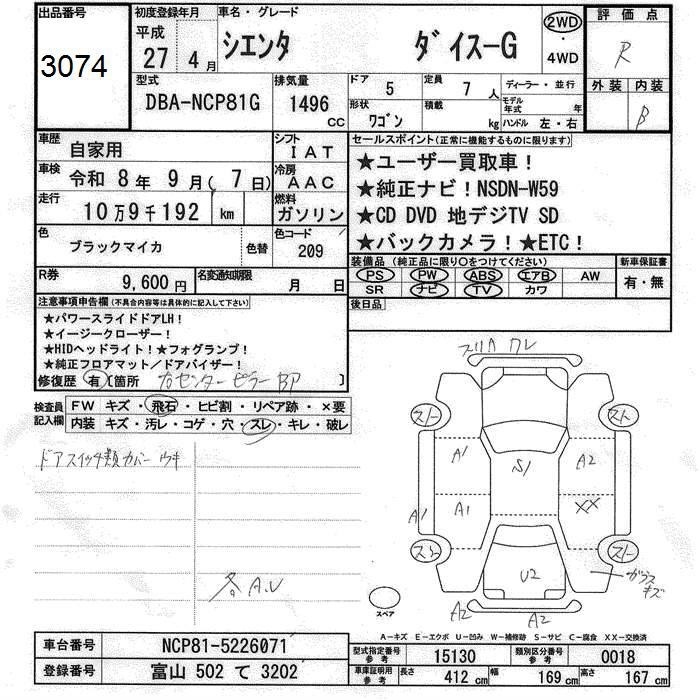 出品番号
3074
初度登録年月
平成
27 年 4 月
車名・グレード
シエンタ ダイスーG
2WD
・
4WD
評価点
R
外装 内装
B
型式
DBA-NCP81G
排気量
1496
CC
ドア
5
定員
7 人
ディーラー・並行
形状
ワゴン
積載
kg
モデル年式 年
ハンドル 左・右
車歴
自家用
シフト
IAT
車検
令和 8 年 9 月 ( 7 日)
冷房
AAC
走行
10 万 9 千 192 km
燃料
ガソリン
色
ブラックマイカ
色替
色コード
209
R券
9,600 円
名変通知期限
月 日
セールスポイント(正常に機能するものに限ります)
★ユーザー買取車!
★純正ナビ!NSDN-W59
★CD DVD 地デジTV SD
★バックカメラ!★ETC!
装備品(純正品に限り○をつけてください)
PS PW ABS エアB AW
SR ナビ TV カワ
新車保証書
有・無
後日品
注意事項申告欄(不具合内容等は具体的に記入して下さい)
★パワースライドドアLH!
★イージークローザー!
★HIDヘッドライト!★フォグランプ!
★純正フロアマット/ドアバイザー!
修復歴 有 [箇所 右センターピラーBP ]
検査員記入欄
FW キズ・飛石・ヒビ割・リペア跡・×要
内装 キズ・汚レ・コゲ・穴・スレ・キレ・破レ
ドアスイッチ類カバーウキ
各A.U
スリキワレ
スト
スト
A1
S1
A2
A1
XX
A1
スト
スト
U2
ガラスキズ
スペア
A2
A2
A-キズ E-エクボ U-凹み W-補修跡 S-サビ C-腐食 XX-交換済
車台番号
NCP81-5226071
登録番号
富山 502 て 3202
型式指定番号
参考
15130
類別区分番号
参考
0018
車庫証明用
参考
長さ
412 cm
幅
169 cm
高さ
167 cm